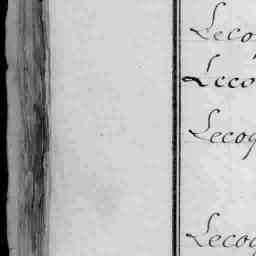 Leco
Leco
Lecoq
Lecoq